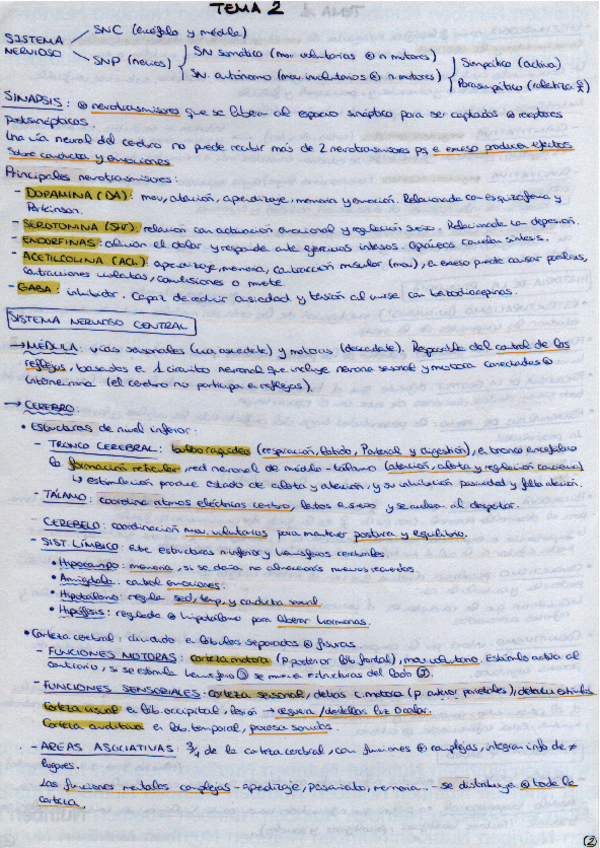 TEMA 2
SISTEMA NERVIOSO
SNC (encéfalo y médula)
SNP (nervios)
SN somático (mov voluntarios ⊗ n motores)
SN. autónomo (mov involuntarios ⊗ n motores)
Simpático (activa)
Parasimpático (relaja)
SINAPSIS: ⊗ neurotrasmisores que se liberan al espacio sináptico para ser captados ⊗ receptores
Postsinápticos.
Una vía neural del cerebro no puede recibir más de 2 neurotrasmisores pq en exceso produce efectos
sobre conducta y emociones
Principales neurotrasmisores:
- DOPAMINA (DA): mov, atención, aprendizaje, memoria y emoción. Relacionada con esquizofrenia y
Parkinson.
- SEROTONINA (5HT): relación con activación emocional y regulación sueño. Relacionada con depresión.
- ENDORFINAS: alivian el dolor y responde ante ejercicios intensos. Opiáceos cancelan síntesis.
- ACETILCOLINA (ACh): aprendizaje, memoria, contracción muscular (mov), en exceso puede causar parálisis,
contracciones violentas, convulsiones o muerte.
- GABA: inhibidor. Capaz de reducir ansiedad y tensión al unirse con benzodiacepinas.
SISTEMA NERVIOSO CENTRAL
→ MÉDULA: vías sensoriales (via ascendente) y motoras (descendente). Responsable del control de los
reflejos, basados en 1 circuito neuronal que incluye neurona sensorial y motora conectadas ⊗
interneurona (el cerebro no participa en reflejos).
→ CEREBRO:
• Estructuras de nivel inferior:
- TRONCO CEREBRAL: bulbo raquídeo (respiración, latido, P arterial y digestión), en tronco encefálico
la formación reticular, red neuronal de médula-tálamo (atención, alerta y regulación conciencia)
↳ estimulación produce estado de alerta y atención, y su inhibición pasividad y falta atención.
- TÁLAMO: coordina ritmos eléctricos cerebro, lentos en sueño y se aceleran al despertar.
- CEREBELO: coordinación mov. voluntarios para mantener postura y equilibrio.
- SIST. LÍMBICO: entre estructuras n inferior y hemisferios cerebrales
• Hipocampo: memoria, si se daña no almacenarás nuevos recuerdos.
• Amígdala: control emociones.
• Hipotálamo: regula sed, temp, y conducta sexual
• Hipófisis: regulada ⊗ hipotálamo para liberar hormonas.
• Corteza cerebral: dividida en lóbulos separados ⊗ fisuras.
- FUNCIONES MOTORAS: corteza motora (p. posterior lób frontal), mov voluntario. Estímulo activa al
contrario, si se estimula hemisferio ⓓ se mueven estructuras del lado ⓘ.
- FUNCIONES SENSORIALES: corteza sensorial, detrás c. motora (p anterior parietales), detecta estímulos
Corteza visual en lób. occipital, lesión → ceguera/destellos luz o color.
Corteza auditiva en lób. temporal, procesa sonidos.
- AREAS ASOCIATIVAS: 3/4 de la corteza cerebral, con funciones ⊕ complejas, integran info de ≠
lugares.
Las funciones mentales complejas - aprendizaje, pensamiento, memoria... - se distribuyen ⊗ toda la
corteza.
2